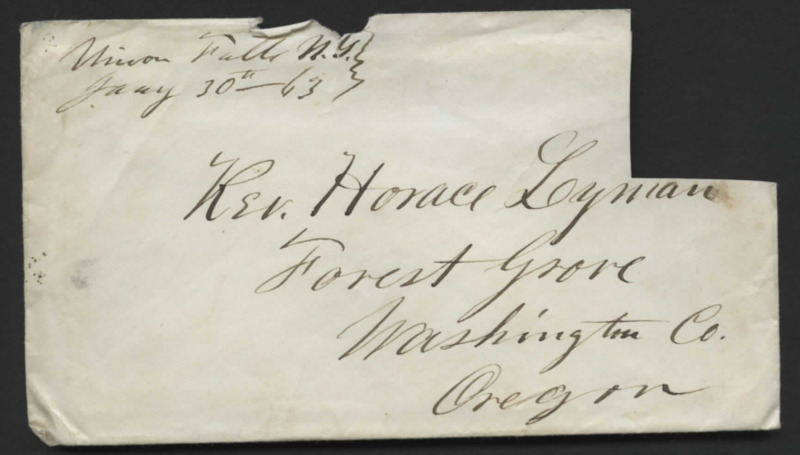 Union Falls N.Y.
Jany 30th - 63
Rev. Horace Lyman
Forest Grove
Washington Co.
Oregon